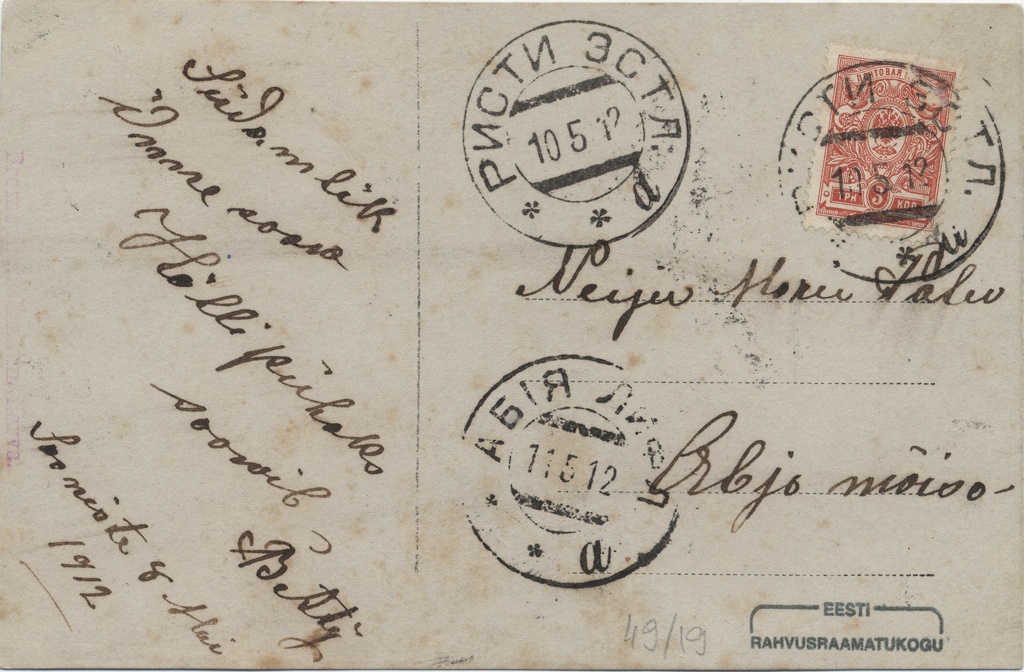 Südamlik
önne soow
Hölli pühaks
soowib
Betty
Sooniste 8 Mai
1912
РИСТИ ЭСТЛ.
10 5 12
* * а
ПОЧТОВАЯ
ТРИ 3 КОП
РИСТИ ЭСТЛ.
10 5 12
*
Neiju Marie
АБІЯ ЛИФЛ
11 5 12
* * а
Abja mõisa
49/19
EESTI
RAHVUSRAAMATUKOGU